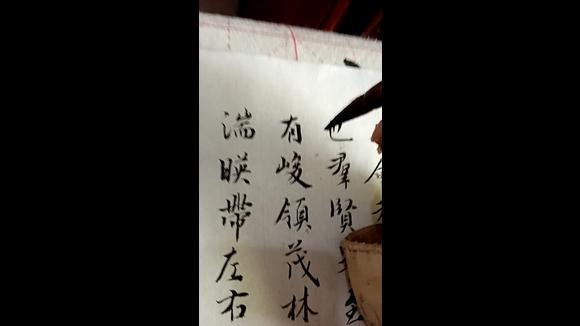 也羣賢至
有峻領茂林
湍暎帶左右